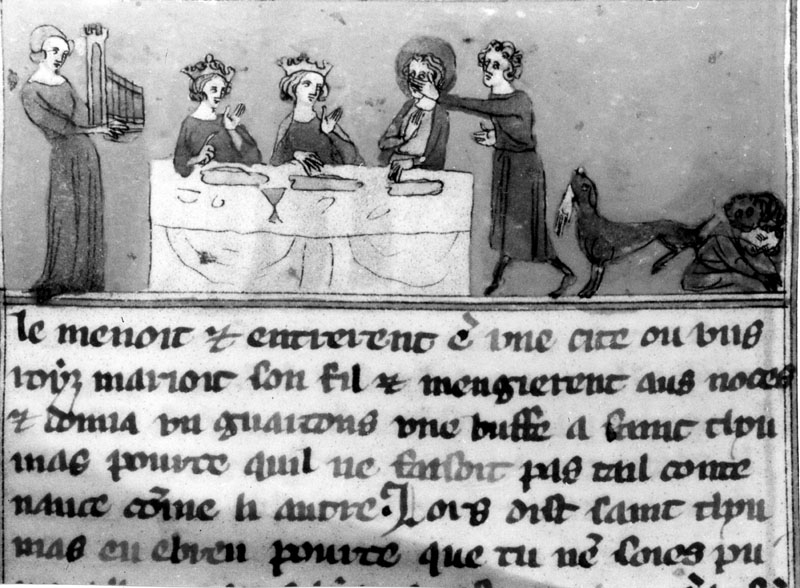 le menoit & entrerent ē vne cite ou vns
roys marioit son fil & mengierent aus noces
& donna vn guartons vne buffe a saint thou
mas pource quil ne faisoit pas tail conte
nance cōme li autre. Lors dist saint thou
mas en ebreu pource que tu nē soies pu